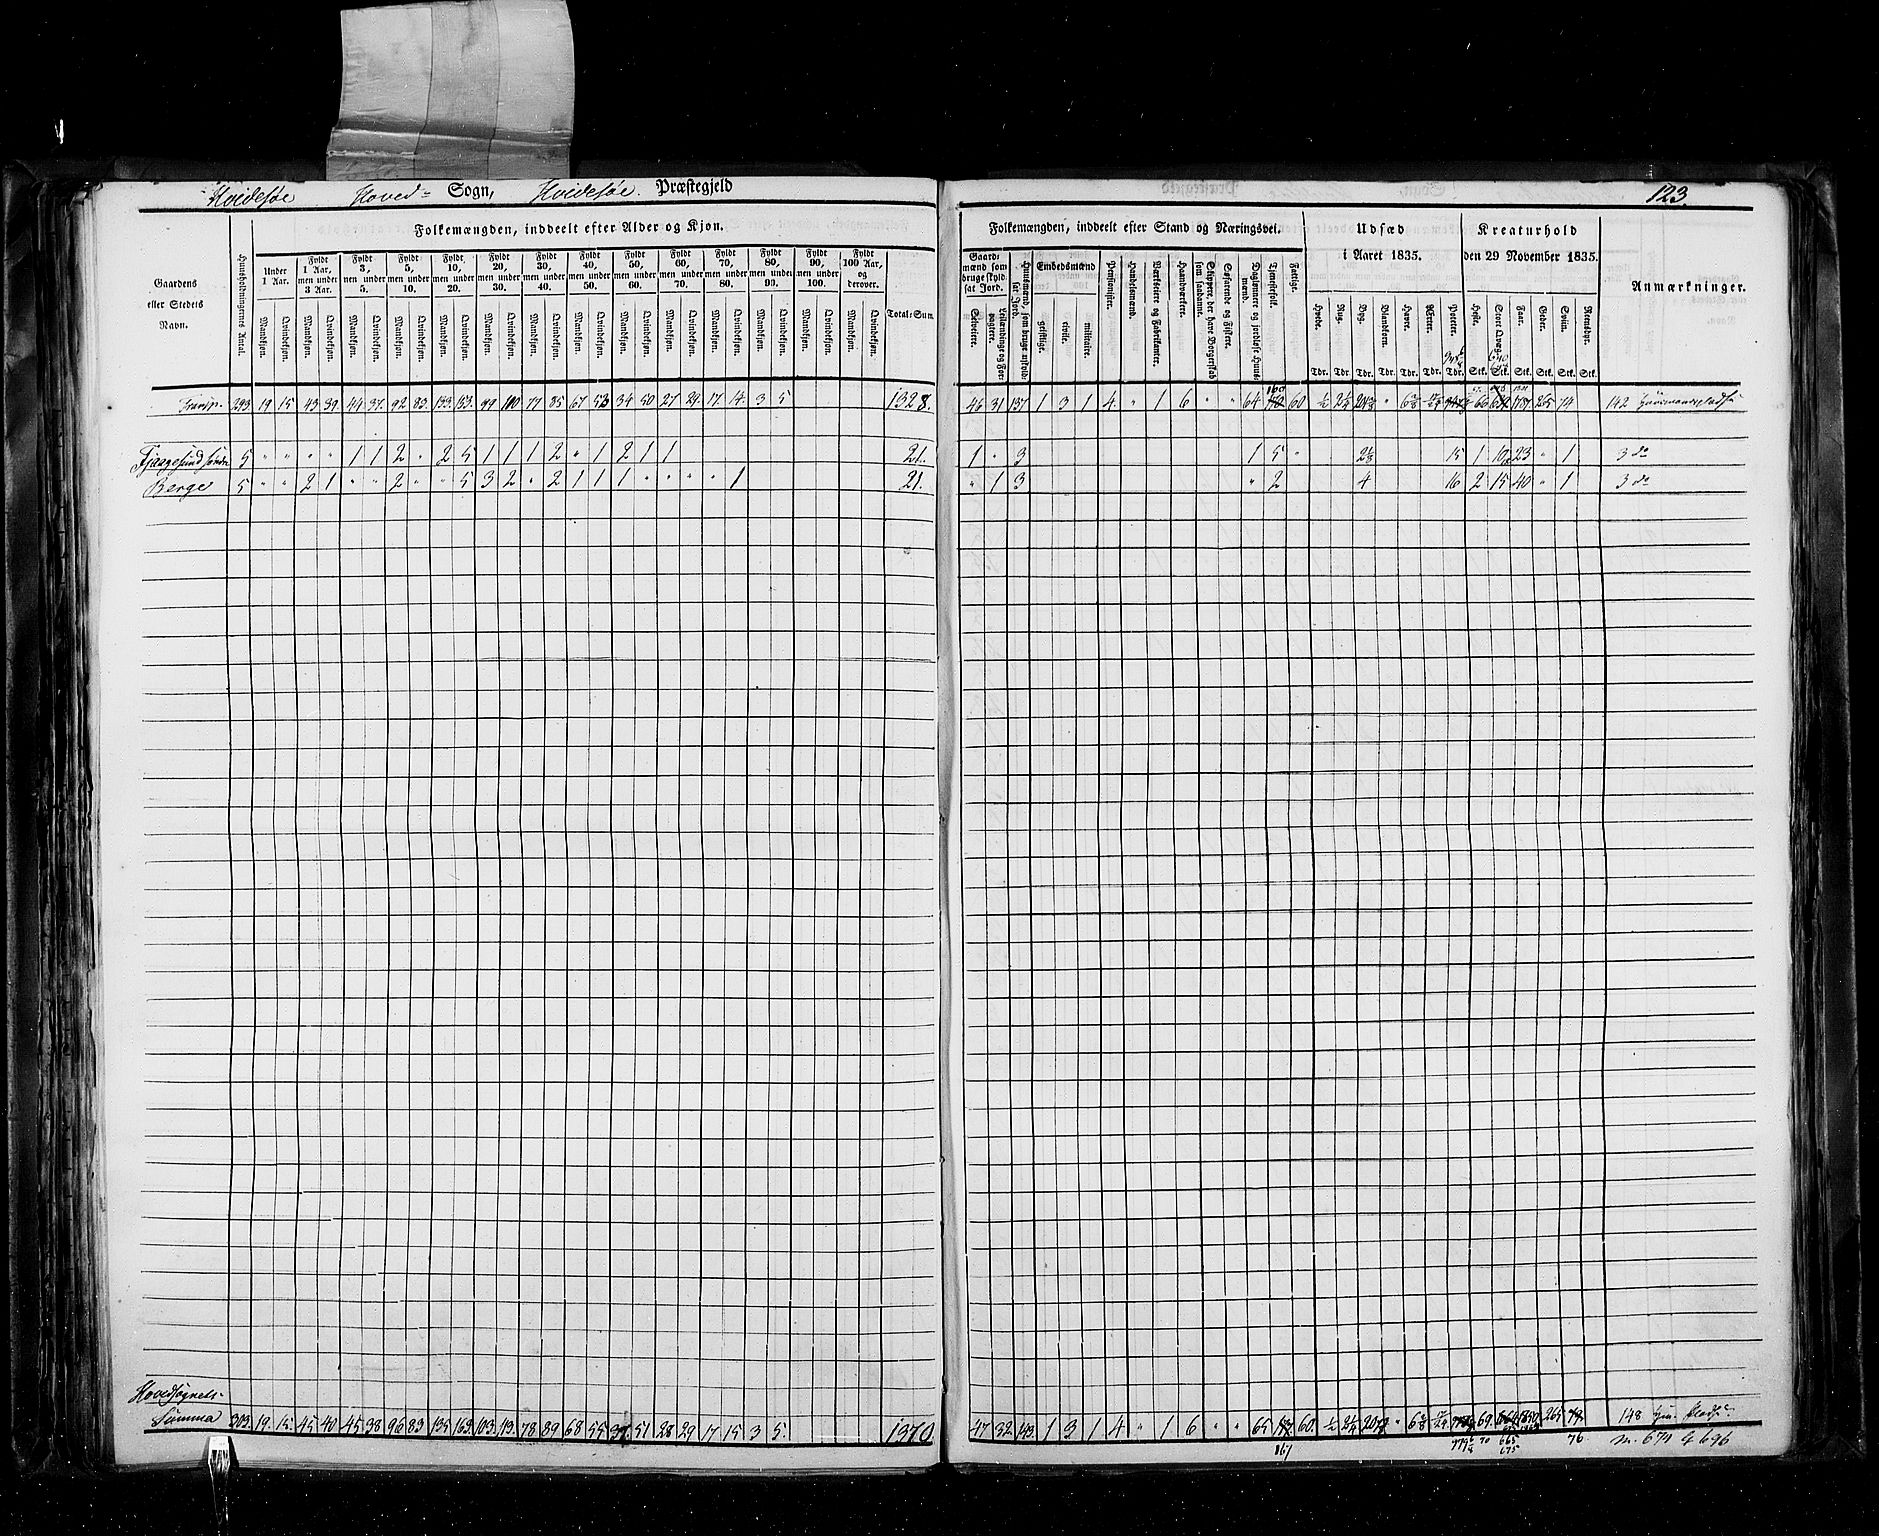 Hvidesøe Hoved= Sogn, Hvidesøe. Præstegjeld
123.
Folkemængden, inddeelt efter Alder og Kjøn.
Folkemængden, inddeelt efter Stand og Næringsvei.
Udsæd i Aaret 1835.
Kreaturhold den 29 November 1835.
Anmærkninger.
Gaardens eller Stedets Navn.
Huusholdningernes Antal.
Under 1 Aar.
Fyldt 1 Aar, men under 3 Aar.
Fyldt 3, men under 5.
Fyldt 5, men under 10.
Fyldt 10, men under 20.
Fyldt 20, men under 30.
Fyldt 30, men under 40.
Fyldt 40, men under 50.
Fyldt 50, men under 60.
Fyldt 60, men under 70.
Fyldt 70, men under 80.
Fyldt 80, men under 90.
Fyldt 90, men under 100.
Fyldt 100 Aar, og derover.
Mandkjøn. Qvindekjøn. Mandkjøn. Qvindekjøn. Mandkjøn. Qvindekjøn. Mandkjøn. Qvindekjøn. Mandkjøn. Qvindekjøn. Mandkjøn. Qvindekjøn. Mandkjøn. Qvindekjøn. Mandkjøn. Qvindekjøn. Mandkjøn. Qvindekjøn. Mandkjøn. Qvindekjøn. Mandkjøn. Qvindekjøn. Mandkjøn. Qvindekjøn. Mandkjøn. Qvindekjøn. Mandkjøn. Qvindekjøn.
Total-Sum.
Gaardmænd som bruge skyldsat Jord.
Selveiere.
Leilændinge og Forpagtere.
Huusmænd, som bruge uskyldsat Jord.
Embedsmænd
geistlige.
civile.
militaire.
Pensionister.
Handelsmænd.
Værkseiere og Fabrikanter.
Haandværkere.
Skippere, der have Borgerskab som saadanne.
Søfarende og Fiskere.
Daglønnere og jordløse Huusmænd.
Tjenestefolk.
Fattige.
Hvede. Rug. Byg. Blandkorn. Havre. Ærter. Poteter.
Tdr. Tdr. Tdr. Tdr. Tdr. Tdr. Tdr.
Heste. Stort Qvæg. Faar. Geder. Sviin. Rensdyr.
Stk. Stk. Stk. Stk. Stk. Stk.
Transp. 293 19 15 43 39 44 37 92 83 133 153 99 100 77 85 67 53 34 50 27 29 17 14 3 5 1328. 46 31 137 1 3 1 4 " 1 6 " " 64 60 66 265 74 142
5 " " " " 1 1 2 " 2 5 1 1 1 2 " 1 2 1 1 21. 1 " 3 1 5 " 2⅛ 15 1 10 23 " 1 3 do
Berge 5 " " 2 1 " " 2 " " 5 3 2 " 2 1 1 1 " " " " 1 21. " 1 3 " 2 4 16 2 15 40 " 1 3 do
Hovedsognets
Summa 303. 19. 15. 45 40 45 38 96 83 135 163 103 78 89 68 55 37 51 28 29 17 15 3 5. 1370. 47 32 143 1 3 1 4 " 1 6 " " 65 60. 69. 265 148
167 70 665 675 76. 674 696